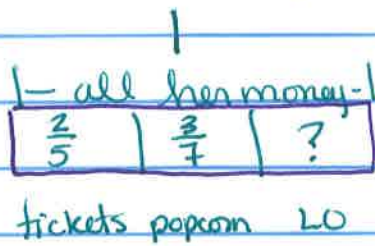 1
|- all her money-|
2/5 | 3/7 | ?
tickets popcorn LO